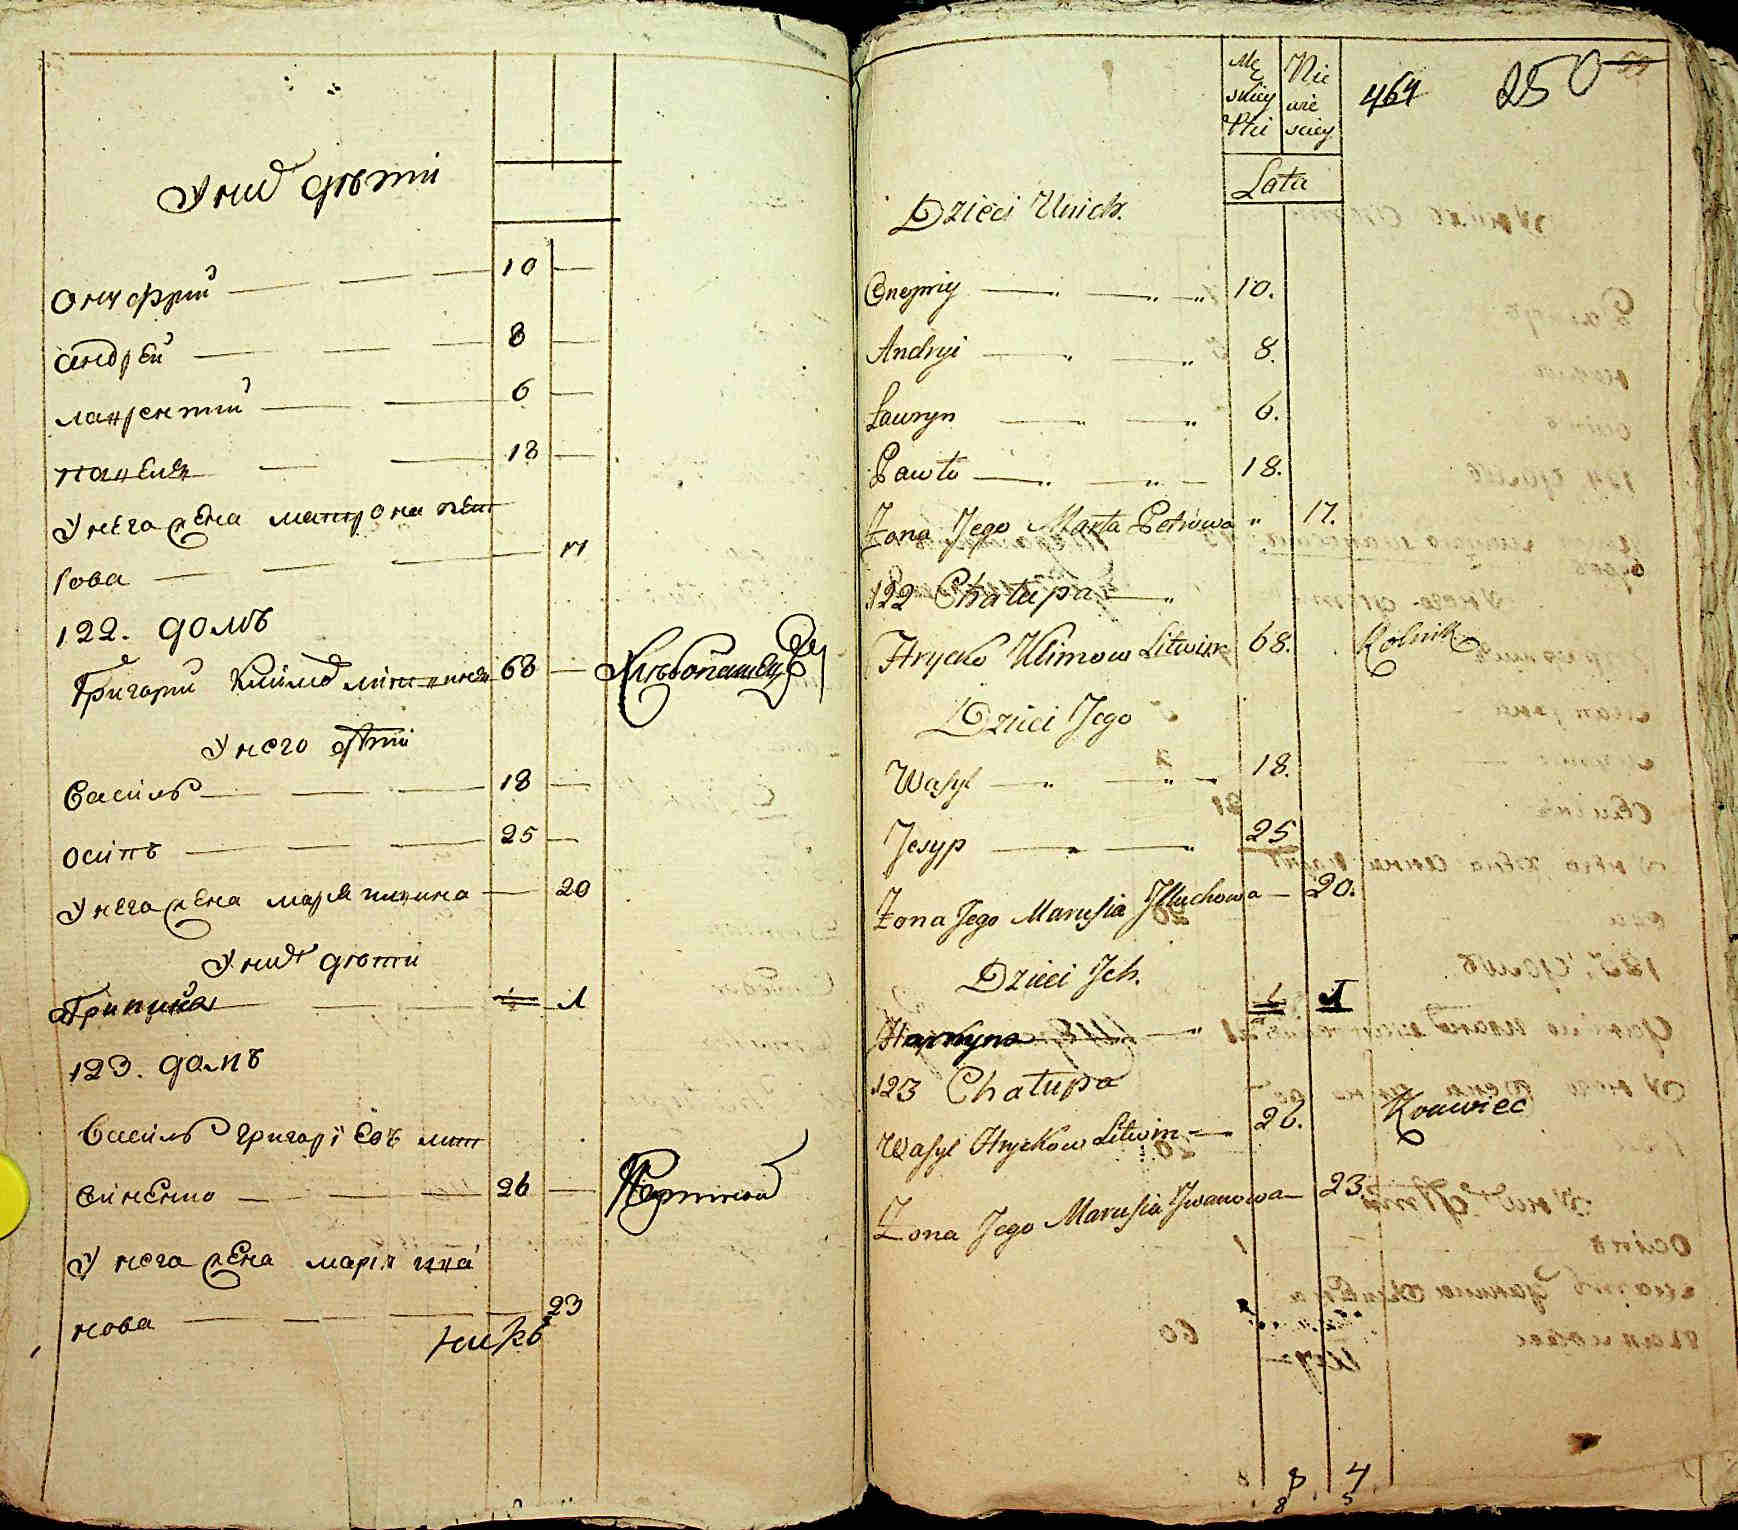 У нихъ дѣти
Онуфрий — — — 10 —
андрей — — — 8 —
лаврентий — — — 6 —
павелъ — — 18 —
У нега жена матрона пет
рова — — — — 17
122. домъ
Григорий Климовъ литвинъ 68 — Хлѣбопашецъ
У него дѣти
василь — — — 18 —
осипъ — — — 25 —
У нега жена мария — 20
У нихъ дѣти
Грипина — — 1
123. домъ
василь григориевъ лит
виненко — — — 26 —
У нега жена мария ива
нова — — — — 23
Męskiey Płci
Niewieściey
464 250
Lata
Dzieci Unich.
Onepriy — — 10.
Andryi — — 8.
Lauryn — — 6.
Pawło — — 18.
Żona Jego Marta Petrowa " 17.
122 Chałupa —
Hrycko Klimow Litwin 68. Rolnik
Dzieci Jego
Wasyl — — 18.
Jesyp — — 25
Żona Jego Marusia — 20.
Dzieci Jch.
Harpyna — 1
123 Chałupa
Wasyl Hryckow Litwin — 26. Krawiec
Żona Jego Marusia Jwanowa — 23.
8 4
8 5